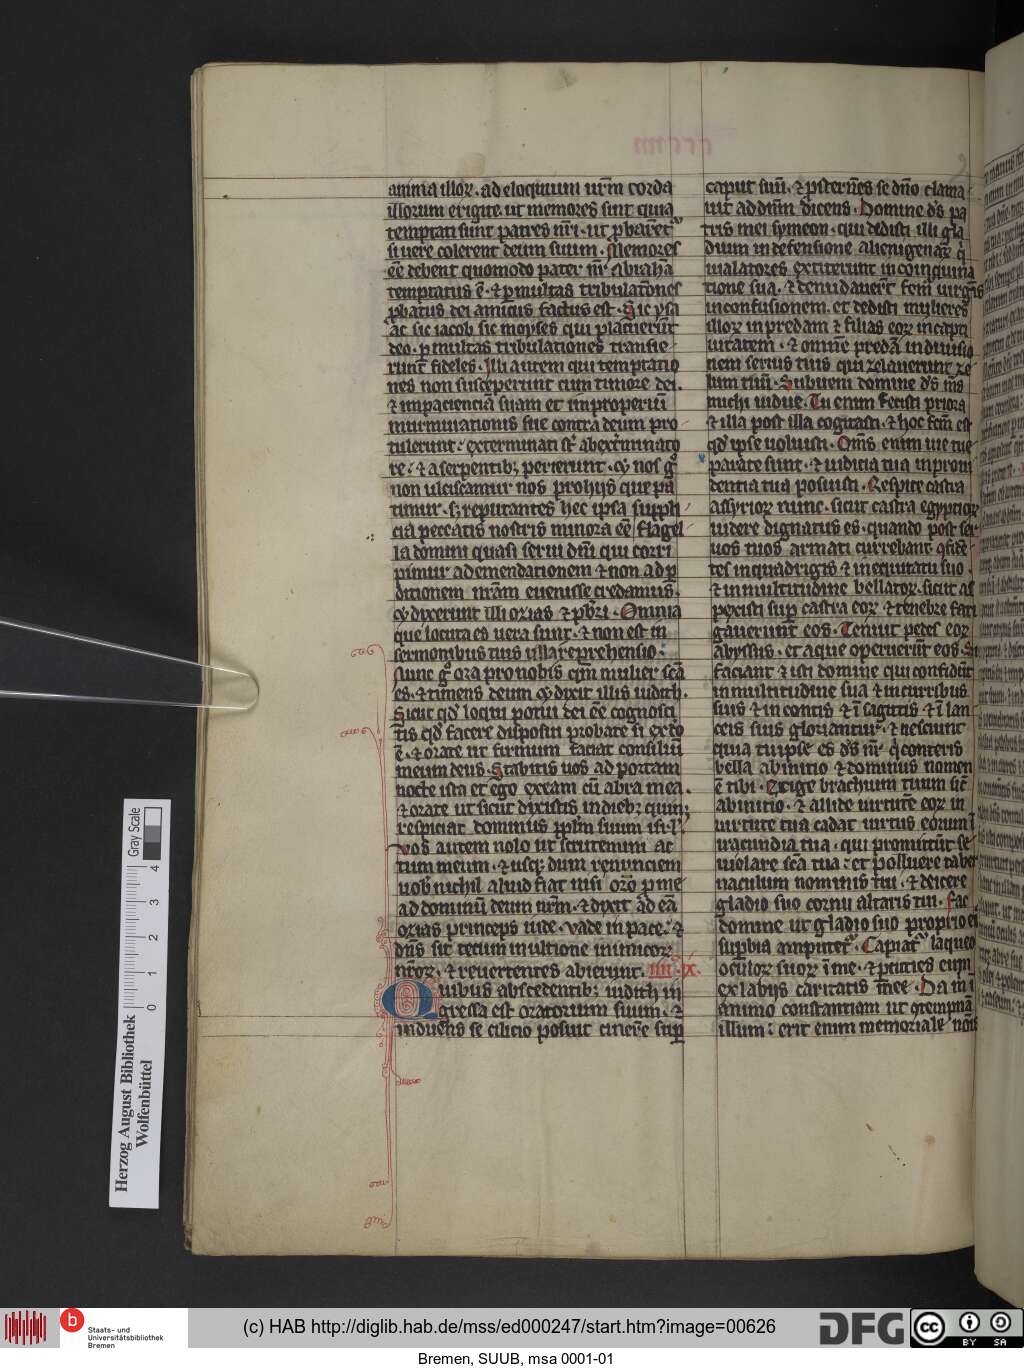 anima illoꝝ. ad eloquium ur̃m corda
illorum erigite. ut memores sint quia
temptati sunt patres nr̃i. ut ꝓbarent᷑
si uere colerent deum suum. Memores
ẽe debent quomodo pater nr̃ Abrahã
temptatus ẽ. ⁊ ꝑ multas tribulatiões
ꝓbatus dei amicus factus est. Sic ysa
ac sic iacob sic moyses qui placuerũt
deo. ꝑ multas tribulationes transie
runt fideles. Illi autem qui temptatio
nes non susceperunt cum timore dei.
⁊ impacienciã suam et improperiũ
murmurationis sue contra deum pro
tulerunt: exterminati sũt ab extͥminato
re: ⁊ a serpentibꝫ perierunt. Et nos gͦ
non ulciscamur nos pro hijs que pa
timur. sꝫ reputantes hec ipsa suppli
cia peccatis nostris minora ẽe flagel
la domini quasi serui dñi qui corri
pimur ad emendationem ⁊ non ad ꝑ
ditionem nr̃am euenisse credamus.
Et dixerunt illi ozias ⁊ pb̃ri. Omnia
que locuta es uera sunt. ⁊ non est in
sermonibus tuis ulla reprehensio:
Nunc gͦ ora pro nobis qm̃ mulier sc̃a
es. ⁊ timens deum. Et dixit illis iudith.
Sicut qd̃ loqui potui dei ẽe cognosci
tis. ita qd̃ facere disposui probate si ex deo
ẽ. ⁊ orate ut firmum faciat consiliũ
meum deus. Stabitis uos ad portam
nocte ista et ego exeam cũ abra mea.
⁊ orate ut sicut dixistis in diebꝫ quinqꝫ
respiciat dominus ppl̃m suum isrl̃.
Vos autem nolo ut scrutemini ac
tum meum. ⁊ usqꝫ dum renunciem
uob̃ nichil aliud fiat nisi oro̊ ꝑ me
ad dominũ deum nr̃m. ⁊ dixit ad eã
ozias princeps iude. Vade in pace. ⁊
dñs sit tecum in ultione inimicoꝝ
nr̃oꝝ. ⁊ reuertentes abierunt. IX.
Quibus abscedentibꝫ iudith in
gressa est oratorium suum. ⁊
induens se cilicio posuit cinerẽ suꝑ
caput suũ. ⁊ ꝓsternẽs se dño clama
uit ad dñm dicens. Domine ds̃ pa
tris mei symeon. qui dedisti illi gla
dium in defensione alienigenaꝝ. qͥ
uiolatores extiterunt in coinquina
tione sua. ⁊ denudauer̃t fem̃ uirgĩs
in confusionem. et dedisti mulieres
illoꝝ in predam ⁊ filias eoꝝ in capti
uitatem. ⁊ omnẽ predã in diuisio
nem seruis tuis qui zelauerunt ze
lum tuũ. Subueni domine ds̃ m̃s
michi uidue. Tu enim fecisti priora
⁊ illa post illa cogitasti. ⁊ hoc fc̃m est
qd̃ ipse uoluisti. Om̃s enim uie tue
parate sunt. ⁊ iudicia tua in proui
dentia tua posuisti. Respice castra
assyrioꝝ nunc. sicut castra egyptioꝝ
uidere dignatus es. quando post ser
uos tuos armati currebant. ꝯfidẽ
tes in quadrigis ⁊ in equitatu suo.
⁊ in multitudine bellatoꝝ. sicut as
pexisti suꝑ castra eoꝝ ⁊ tenebre fati
gauerunt eos. Tenuit pedes eoꝝ
abyssus. et aque operuerũt eos. Sic
faciant ⁊ isti domine qui confidũt
in multitudine sua ⁊ in curribus
suis ⁊ in contis ⁊ ĩ sagittis ⁊ ĩ lan
ceis suis gloriantur. ⁊ nesciunt
quia tu ipse es ds̃ nr̃ qͥ conteris
bella ab initio ⁊ dominus nomen
ẽ tibi. Erige brachium tuum sic̃
ab initio. ⁊ allide uirtutẽ eoꝝ in
uirtute tua cadat uirtus eorum ĩ
iracundia tua. qui promittũt se
uiolare sc̃a tua: et polluere taber
naculum nominis tui. ⁊ deicere
gladio suo cornu altaris tui. Fac
domine ut gladio suo proprio ei
suꝑbia amputet᷑. Capiat᷑ laqueo
oculoꝝ suoꝝ ĩ me. ⁊ ꝑcuties eum
ex labijs caritatis mee. Da m̃ i
animo constantiam ut ꝯtempnã
illum: erit enim memoriale nõis
Herzog August Bibliothek
Wolfenbüttel
Gray Scale
0 1 2 3 4
b Staats- und
Universitätsbibliothek
Bremen
(c) HAB http://diglib.hab.de/mss/ed000247/start.htm?image=00626
DFG
cc BY SA
Bremen, SUUB, msa 0001-01